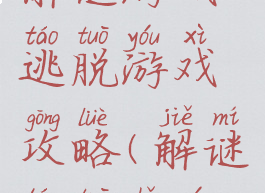 táo tuō yóu xì
逃脱游戏
gōng lüè jiě mí
攻略(解谜